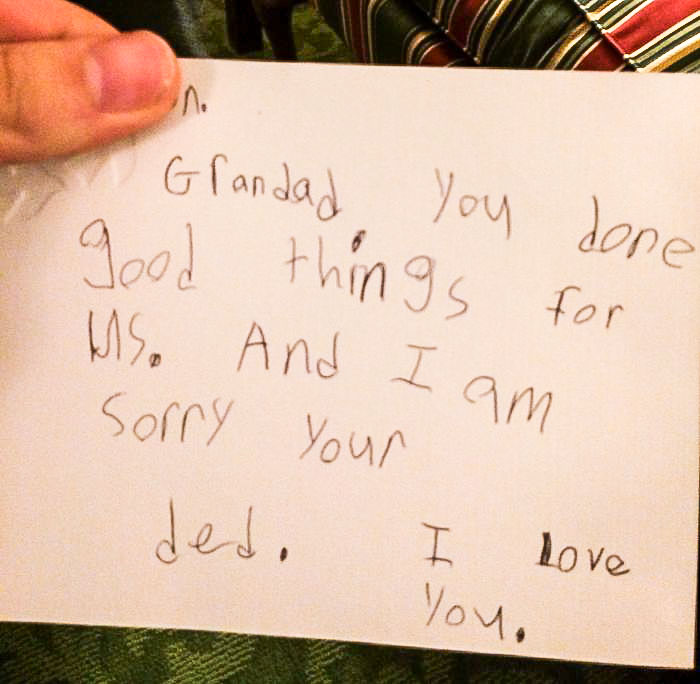 n.
Grandad, you done
good things for
us. And I am
sorry your
ded. I love
you.